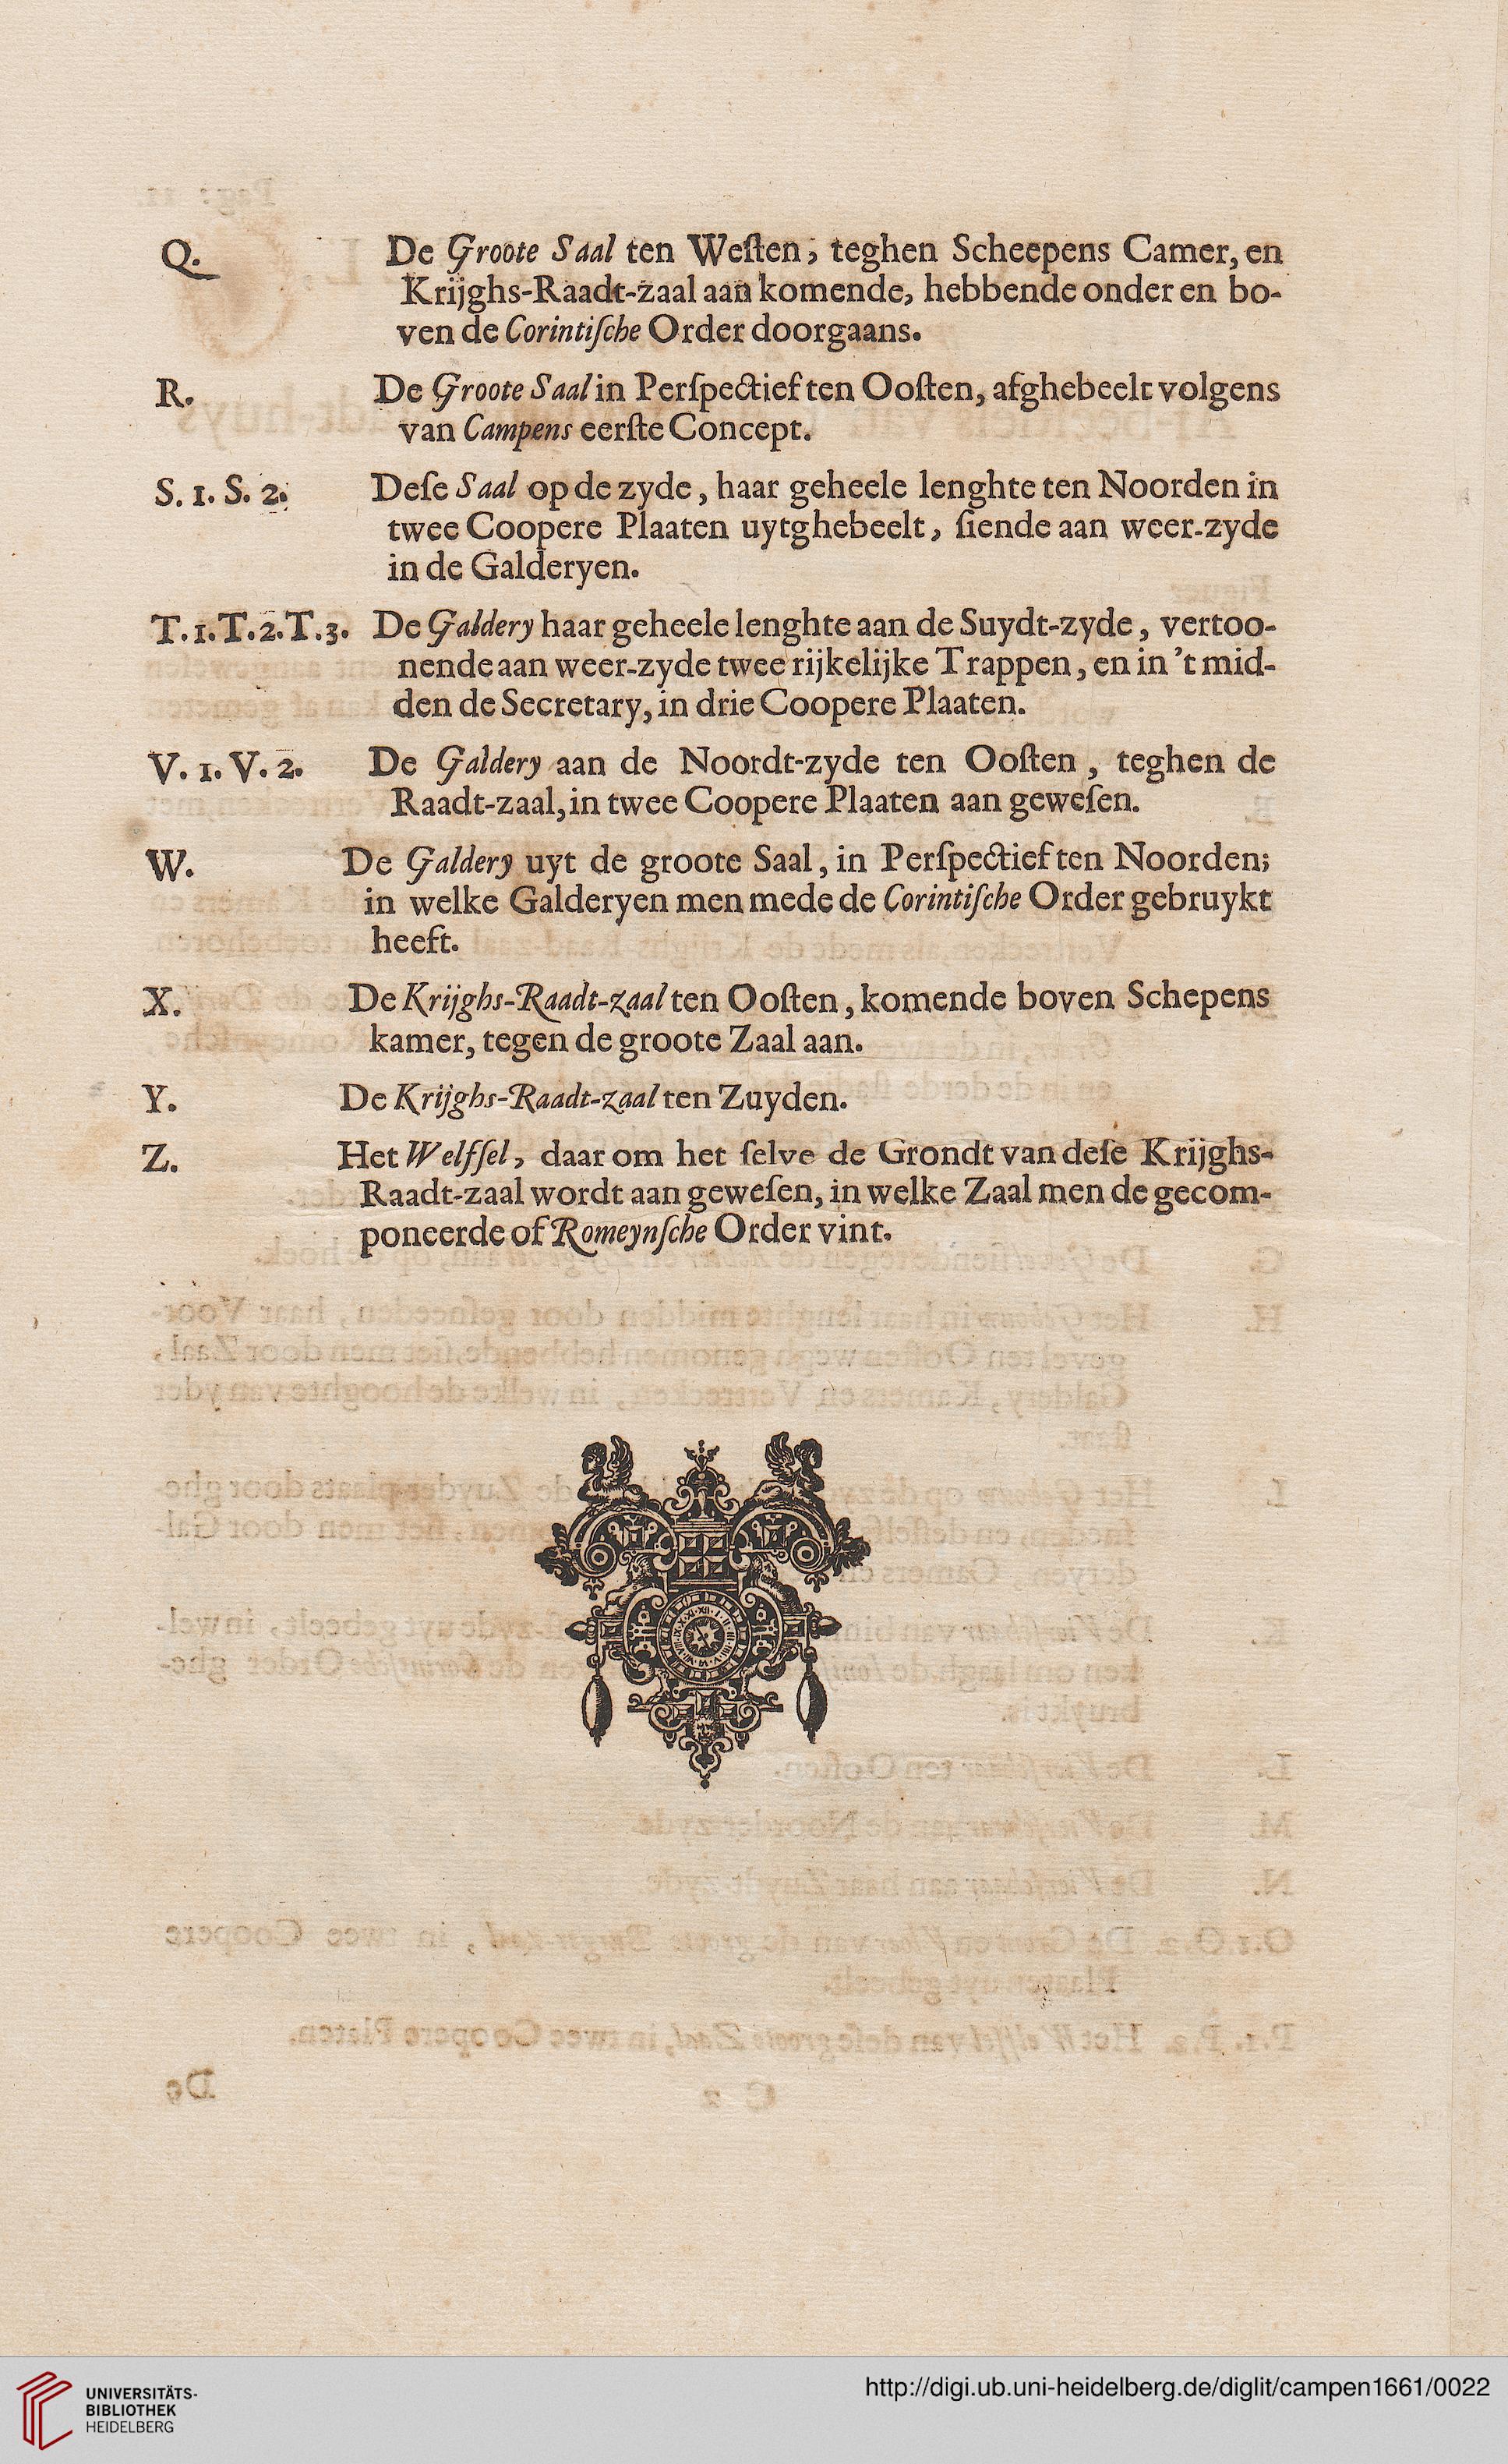 Q. De Groote Saal ten Weſten; teghen Scheepens Camer, en
Krijghs-Raadt-zaal aan komende, hebbende onder en bo-
ven de Corintiſche Order doorgaans.
R. De Groote Saal in Perſpectief ten Ooſten, afghebeelt volgens
van Campens eerſte Concept.
S. 1. S. 2. Deſe Saal op de zyde, haar geheele lenghte ten Noorden in
twee Coopere Plaaten uytghebeelt, ſiende aan weer-zyde
in de Galderyen.
T. 1. T. 2. T. 3. De Galdery haar geheele lenghte aan de Suydt-zyde, vertoo-
nende aan weer-zyde twee rijkelijke Trappen, en in 't mid-
den de Secretary, in drie Coopere Plaaten.
V. 1. V. 2. De Galdery aan de Noordt-zyde ten Ooſten, teghen de
Raadt-zaal, in twee Coopere Plaaten aan geweſen.
W. De Galdery uyt de groote Saal, in Perſpectief ten Noorden;
in welke Galderyen men mede de Corintiſche Order gebruykt
heeft.
X. De Krijghs-Raadt-zaal ten Ooſten, komende boven Schepens
kamer, tegen de groote Zaal aan.
Y. De Krijghs-Raadt-zaal ten Zuyden.
Z. Het Welfſel, daar om het ſelve de Grondt van deſe Krijghs-
Raadt-zaal wordt aan geweſen, in welke Zaal men de gecom-
poneerde of Romeynſche Order vint.
UNIVERSITÄTS-
BIBLIOTHEK
HEIDELBERG
http://digi.ub.uni-heidelberg.de/diglit/campen1661/0022